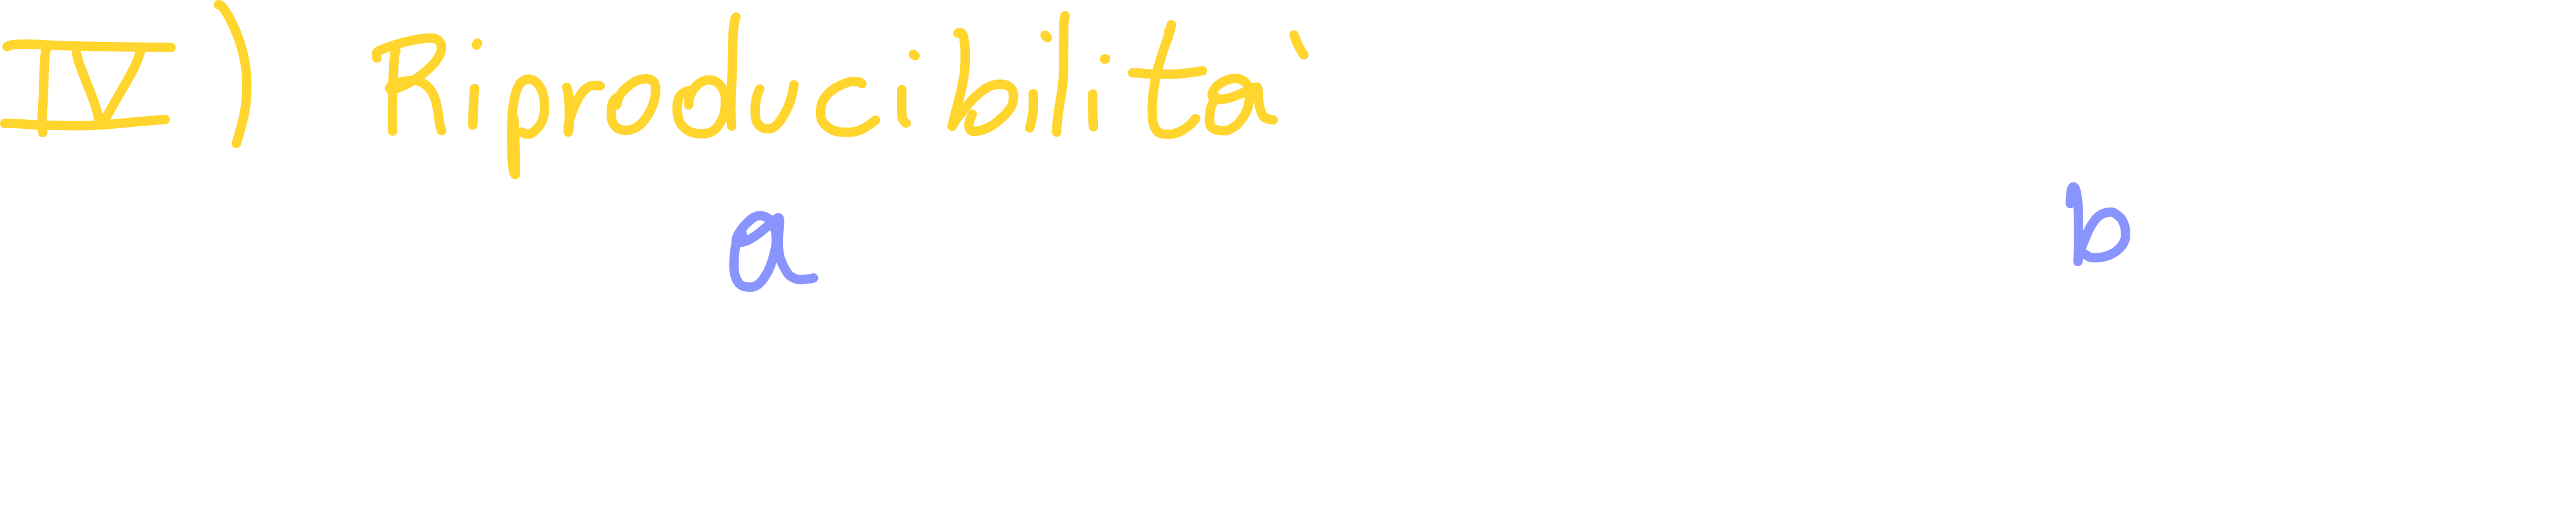 IV) Riproducibilita`
a b